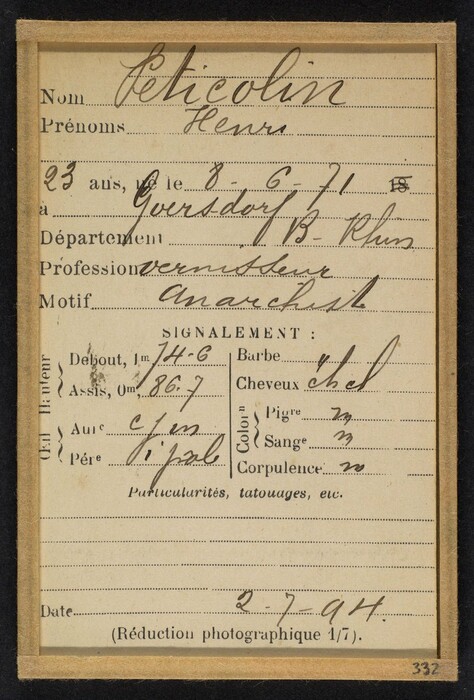 Nom Peticolin
Prénoms Henri
23 ans, né le 8-6-71 18
à Goersdorf
Département B-Rhin
Profession vernisseur
Motif Anarchiste
SIGNALEMENT :
Hauteur
Debout, 1m 74-6
Assis, 0m, 86-7
Œil
Aure
Pére
Barbe
Cheveux
Colorn
Pigre m
Sange m
Corpulence m
Particularités, tatouages, etc.
Date 2-7-94.
(Réduction photographique 1/7).
332